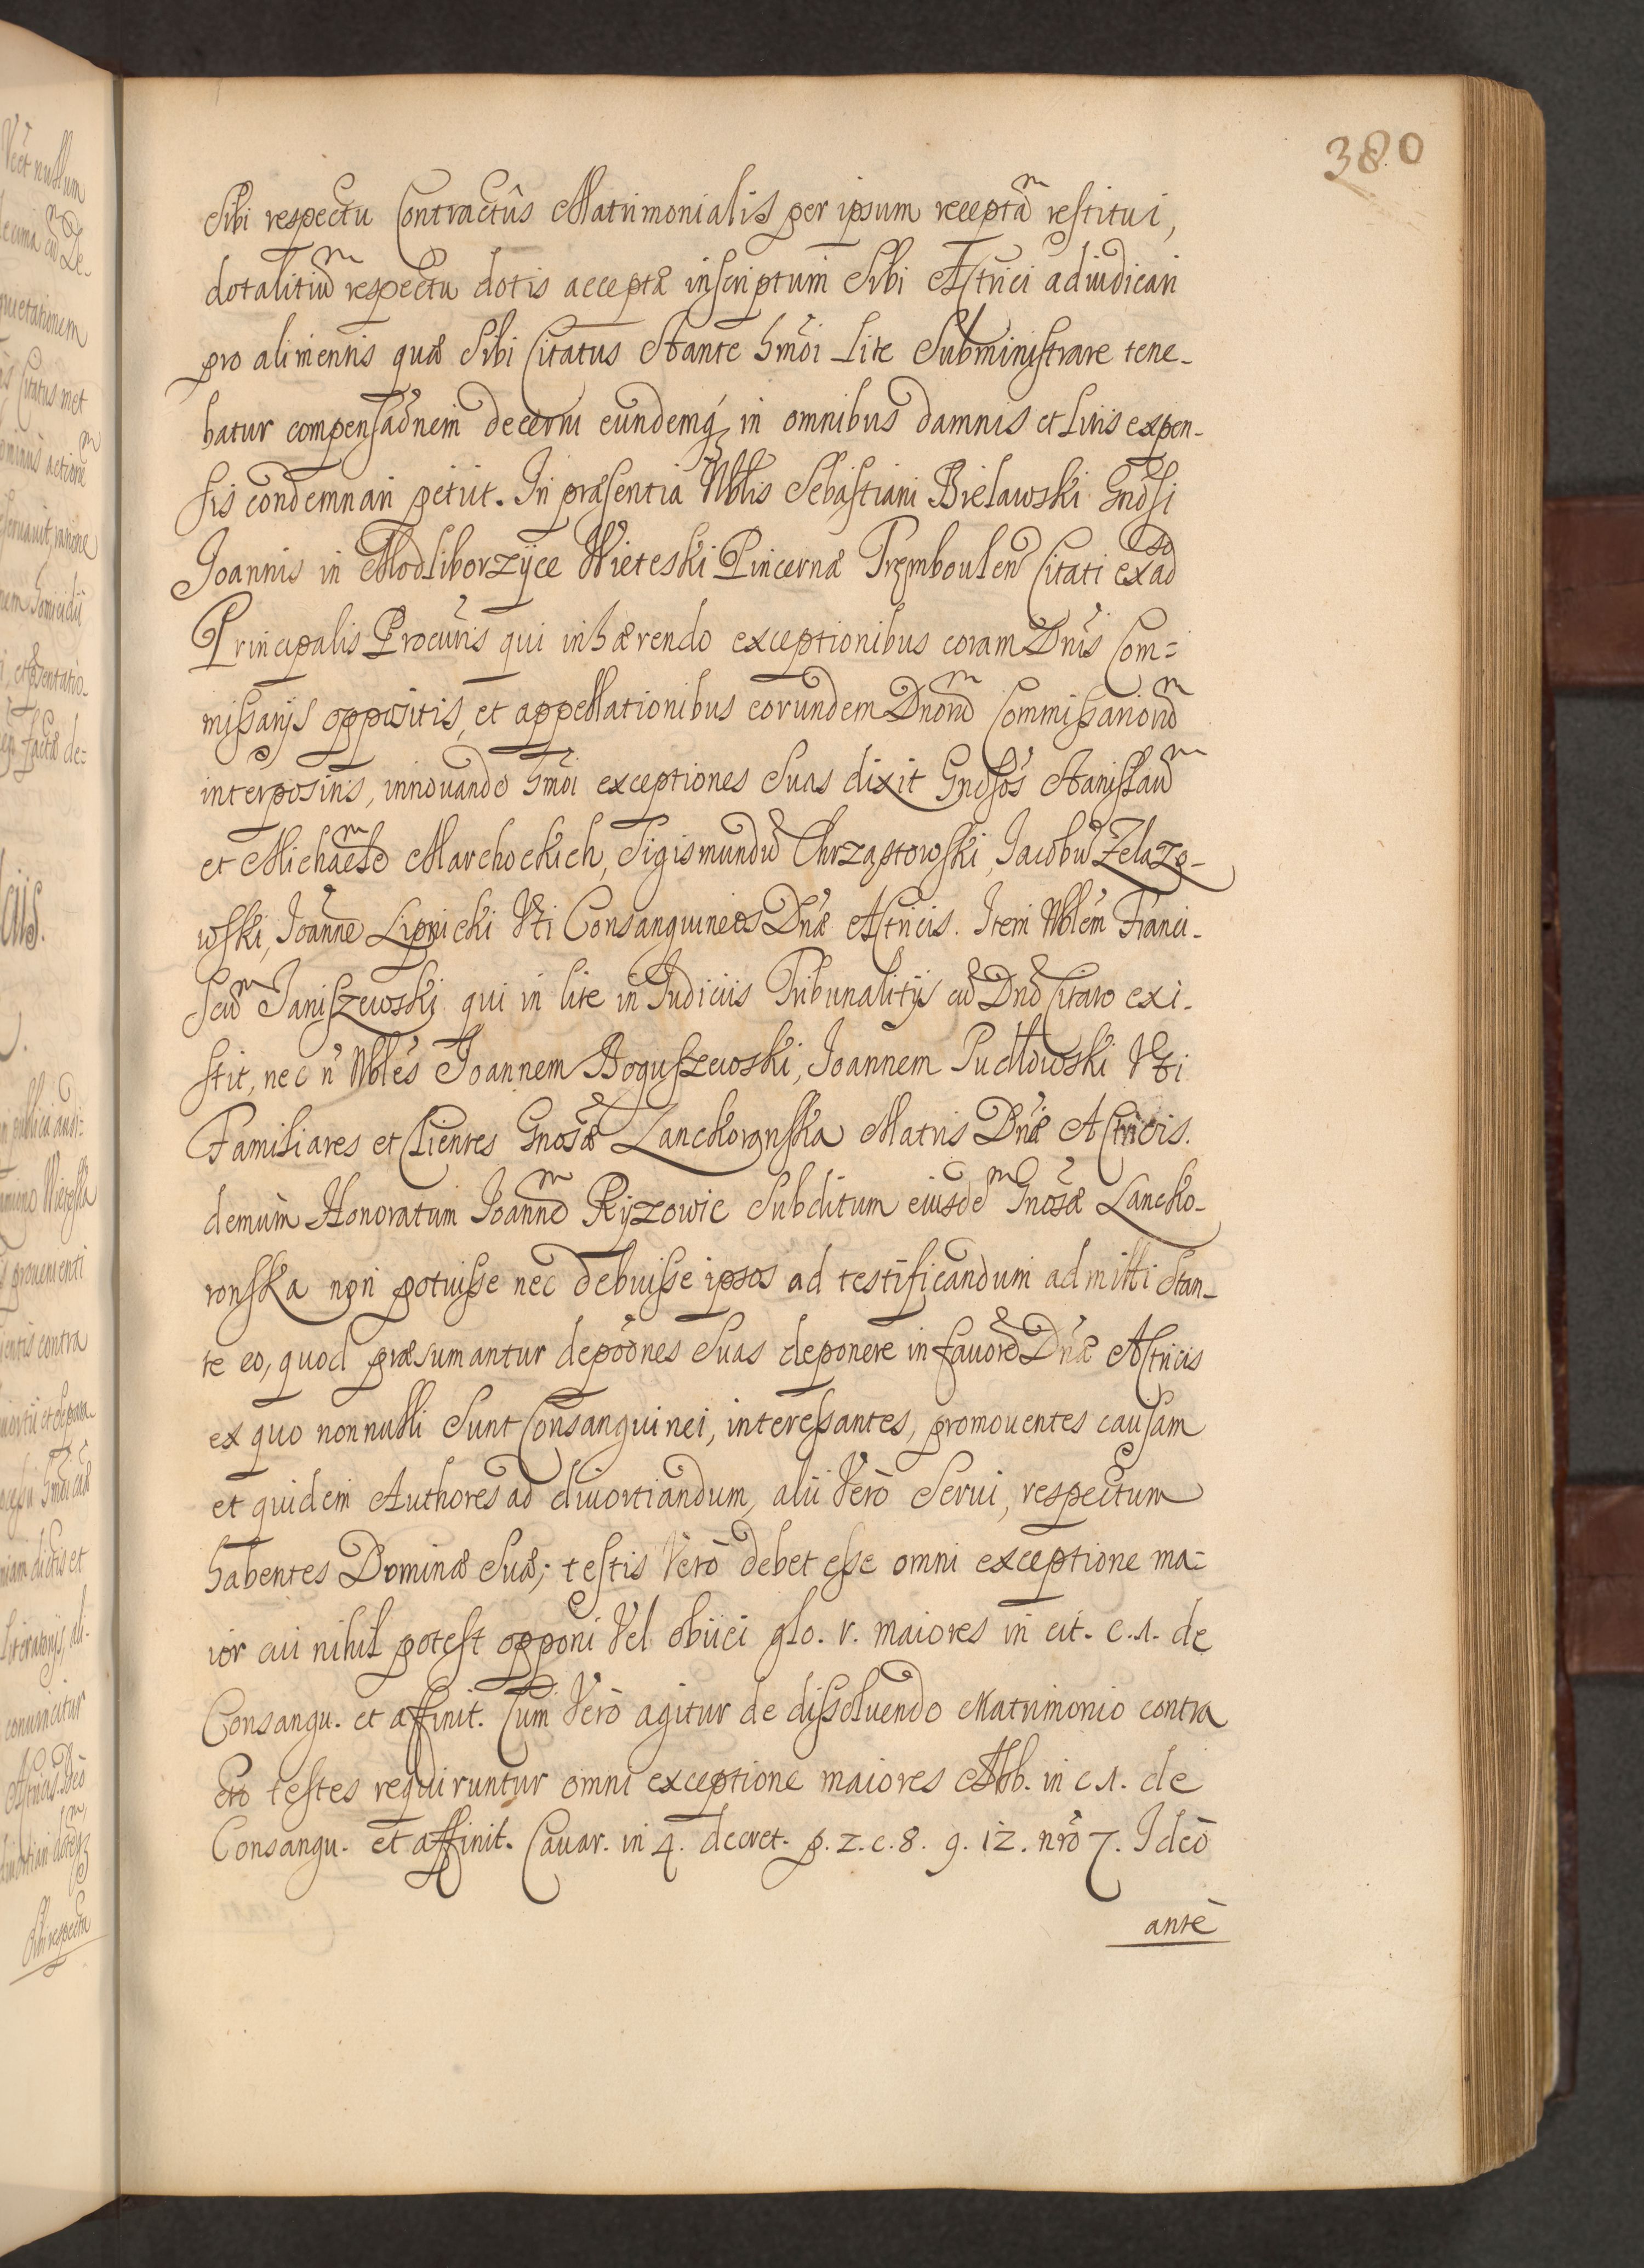 380
Sibi respectu Contractûs Matrimonialis per ipsum receptã restitui,
dotalitiũ respectu dotis acceptæ inscriptum Sibi Actrici adiudicari
pro alimentis quæ Sibi Citatus Stante hmõi Lite Subministrare tene-
batur compensaõnem decerni eundemq; in omnibus damnis et Litis expen-
sis condemnari petiit. In præsentia Nblis Sebastiani Bielawski Gnõsi
Joannis in Modliborzyce Wieteski Pincernæ Tremboulen̄ Citati ex ad⁠so
Principalis Procũris qui inhærendo exceptionibus coram Dn̄is Com=
missarijs oppositis, et appellationibus eorundem Dnorũ Commissariorũ
interpositis, innouando hmõi exceptiones Suas dixit Gnosõs Stanislaũ
et Michaelẽ Marchockich, Sigismundũ Chrząstowski, Jacobũ Zelazo-
wski, Joannẽ Lipnicki Vti Consanguineos Dnæ Actricis. Item Nblẽm Franci-
scũ Janiszewski qui in lite in Judiciis Tribunalitijs cũ Dnõ Citato exi-
stit, nec n̄ Nblẽs Joannem Boguszewski, Joannem Pudłowski Vti
Familiares et Clientes Gnosæ Lanckoronska Matris Dnæ Actricis.
demùm Honoratum Joannẽ Ryzowic Subditum eiusdẽ Gnosæ Lancko-
ronska non potuisse nec debuisse ipsos ad testificandum admitti Stan-
te eo, quod præsumantur depoõnes Suas deponere in fauorẽ Dnæ Actricis
ex quo nonnulli Sunt Consanguinei, interessantes, promouentes causam
et quidem Authores ad diuortiandum, alii Verò Serui, respectum
habentes Dominæ Suæ; testis Verò debet esse omni exceptione ma=
ior cui nihil potest opponi Vel obiici glo. v. maiores in cit. c. 1. de
Consangu. et affinit. Cum Verò agitur de dissoluendo Matrimonio contra
testes requiruntur omni exceptione maiores Abb. in c. 1. de
Consangu. et affinit. Cauar. in 4. decret. p. 2. c. 8. g. 12. nrõ 7. Ideò
antè